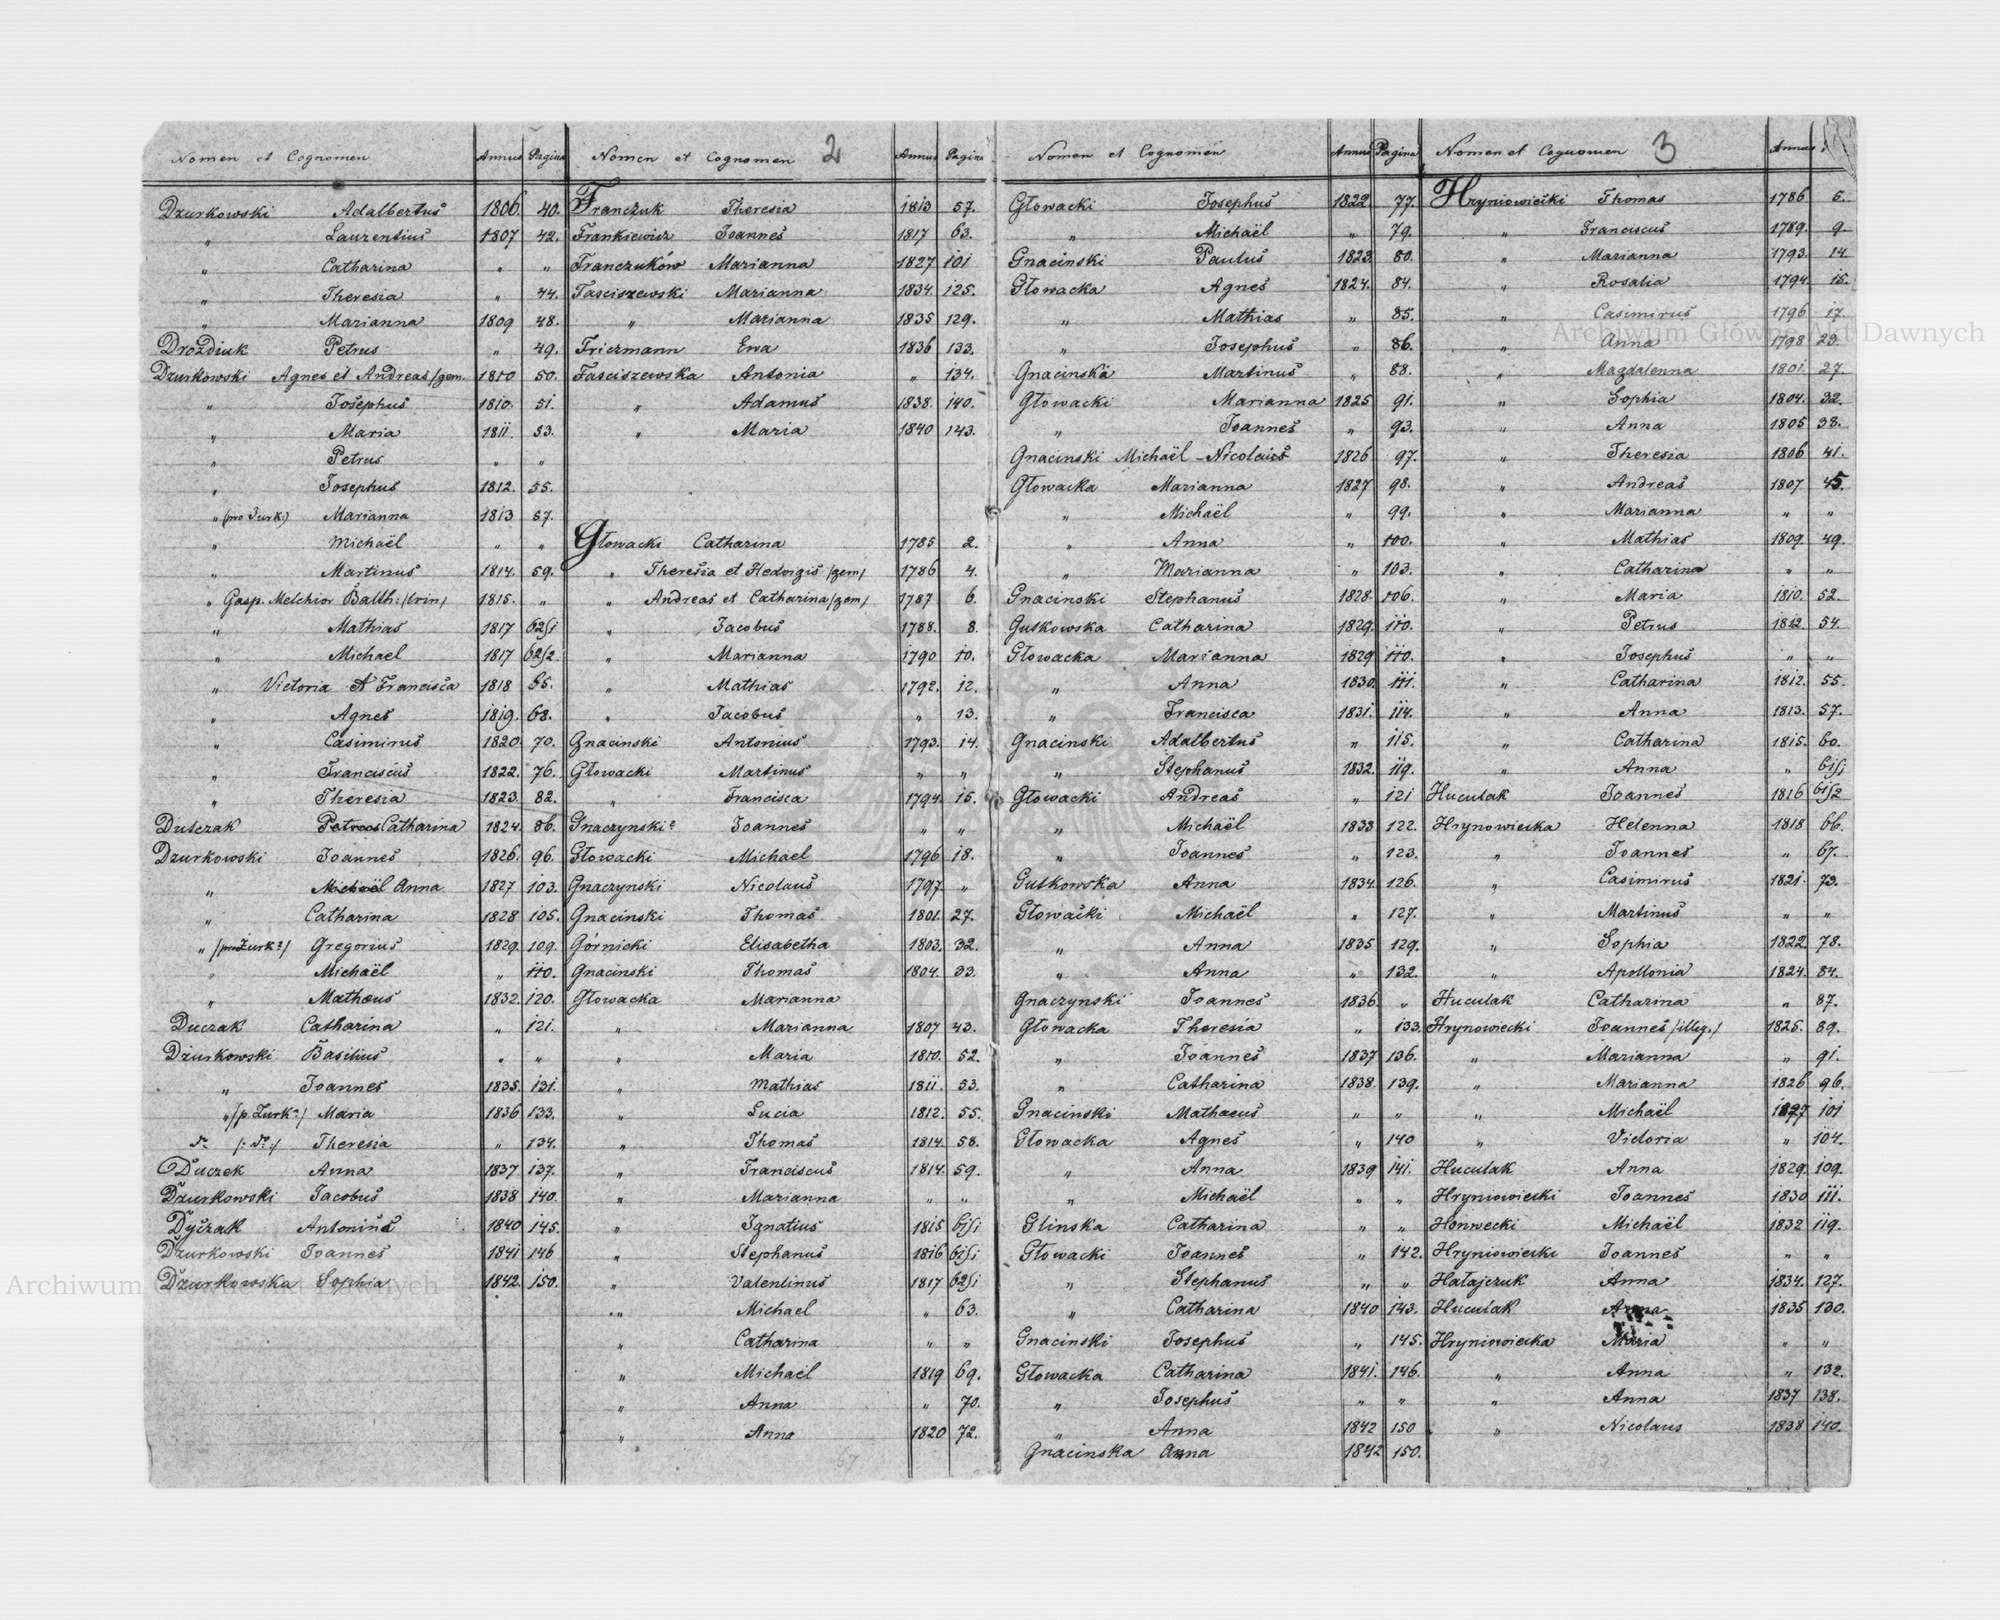 Nomen et Cognomen Annus Pagina
Dzurkowski Adalbertus 1806. 40.
" Laurentius 1807 42.
" Catharina " "
" Theresia " 44.
" Marianna 1809 48.
Drozdiuk Petrus " 49.
Dzurkowski Agnes et Andreas /gem. 1810 50.
" Josephus 1810. 51.
" Maria 1811. 53.
" Petrus " "
" Josephus 1812. 55.
" (pro Zurk:) Marianna 1813 57.
" Michaël " "
" Martinus 1814. 59.
" Gasp. Melchior Balth: /trin/ 1815. "
" Mathias 1817 62/1
" Michael 1817 62/2.
" Victoria et Francisca 1818 65.
" Agnes 1819. 68.
" Casimirus 1820. 70.
" Franciscus 1822. 76.
" Theresia 1823. 82.
Dutczak Catharina 1824. 86.
Dzurkowski Joannes 1826. 96.
" Michaël Anna 1827 103.
" Catharina 1828 105.
" /pro Zurk?/ Gregorius 1829. 109.
" Michaël " 110.
" Mathaeus 1832. 120.
Duczak Catharina " 121.
Dżurkowski Basilius " "
" Joannes 1835. 131.
" /p. Zurk:/ Maria 1836 133.
dº /: dº :/ Theresia " 134.
Duczek Anna 1837 137.
Dzurkowski Jacobus 1838 140.
Dyczak Antonina 1840 145.
Dzurkowski Joannes 1841 146
Dzurkowska Sophia 1842. 150.
Nomen et Cognomen 2 Annus Pagina
Franczuk Theresia 1813 57.
Frankiewicz Joannes 1817 63.
Franczuków Marianna 1827 101
Fasciszewski Marianna 1834. 125.
" Marianna 1835 129.
Friczmann Ewa 1836 133.
Fasciszewska Antonia " 134.
" Adamus 1838. 140.
" Maria 1840 143.
Głowacki Catharina 1785 2.
" Theresia et Hedvigis /gem/ 1786 4.
" Andreas et Catharina /gem/ 1787 6.
" Jacobus 1788. 8.
" Marianna 1790 10.
" Mathias 1792. 12.
" Jacobus " 13.
Gnacinski Antonius 1793. 14.
Głowacki Martinus " "
" Francisca 1794. 15.
Gnaczynski Joannes " "
Głowacki Michael 1796 18.
Gnaczynski Nicolaus 1797. "
Gnacinski Thomas 1801. 27.
Górnicki Elisabetha 1803. 32.
Gnacinski Thomas 1804. 33.
Głowacka Marianna
" Marianna 1807 43.
" Maria 1810. 52.
" Mathias 1811. 53.
" Lucia 1812. 55.
" Thomas 1814. 58.
" Franciscus 1814. 59.
" Marianna " "
" Ignatius 1815 61/1
" Stephanus 1816 61/1
" Valentinus 1817 62/1
" Michael " 63.
" Catharina " "
" Michaël 1819 69.
" Anna " 70.
" Anna 1820 72.
67
Nomen et Cognomen Annus Pagina
Głowacki Josephus 1822 77.
" Michaël " 79.
Gnacinski Paulus 1823. 80.
Głowacka Agnes 1824. 84.
" Mathias " 85.
" Josephus " 86.
Gnacinska Martinus " 88.
Głowacki Marianna 1825 91.
" Joannes " 93.
Gnacinski Michaël-Nicolaus 1826 97.
Głowacka Marianna 1827 98.
" Michaël " 99.
" Anna " 100.
" Marianna " 103.
Gnacinski Stephanus 1828. 106.
Gutkowska Catharina 1829. 110.
Głowacka Marianna 1829 110.
" Anna 1830. 111.
" Francisca 1831. 114.
Gnacinski Adalbertus " 115.
" Stephanus 1832. 119.
Głowacki Andreas " 121
" Michaël 1833 122.
" Joannes " 123.
Gutkowska Anna 1834. 126.
Głowacki Michaël " 127.
" Anna 1835 129.
" Anna " 132.
Gnaczynski Joannes 1836. "
Głowacka Theresia " 133.
" Joannes 1837 136.
" Catharina 1838. 139.
Gnacinski Mathaeus " "
Głowacka Agnes " 140
" Anna 1839 141.
" Michaël " "
Glinska Catharina " "
Głowacki Joannes " 142.
" Stephanus " "
" Catharina 1840 143.
Gnacinski Josephus " 145.
Głowacka Catharina 1841. 146.
" Josephus " "
" Anna 1842 150
Gnacinska Anna 1842 150.
Nomen et Cognomen 3 Annus
Hryniowiecki Thomas 1786 5.
" Franciscus 1789. 9.
" Marianna 1793. 14
" Rosalia 1794. 15.
" Casimirus 1796 17.
" Anna 1798 23.
" Magdalenna 1801. 27.
" Sophia 1804. 32.
" Anna 1805 38.
" Theresia 1806 41.
" Andreas 1807 45.
" Marianna " "
" Mathias 1809. 49.
" Catharina " "
" Maria 1810. 52.
" Petrus 1812. 54.
" Josephus " "
" Catharina 1812. 55.
" Anna 1813. 57.
" Catharina 1815. 60.
" Anna " 61/1
Huculak Joannes 1816 61/2
Hrynowiecka Helenna 1818 66.
" Joannes " 67.
" Casimirus 1821. 73.
" Martinus " "
" Sophia 1822. 78.
" Apollonia 1824. 84.
Huculak Catharina " 87.
Hrynowiecki Joannes /illeg./ 1825. 89.
" Marianna " 91.
" Marianna 1826 96.
" Michaël 1827 101
" Victoria " 104.
Huculak Anna 1829. 109.
Hryniowiecki Joannes 1830 111.
Honwecki Michaël 1832 119.
Hryniowiecki Joannes " "
Hałajczuk Anna 1834. 127.
Huculak Anna 1835 130.
Hryniowiecka Maria " "
" Anna " 132.
" Anna 1837 138.
" Nicolaus 1838 140.
Archiwum Główne Akt Dawnych
Archiwum Główne Akt Dawnych